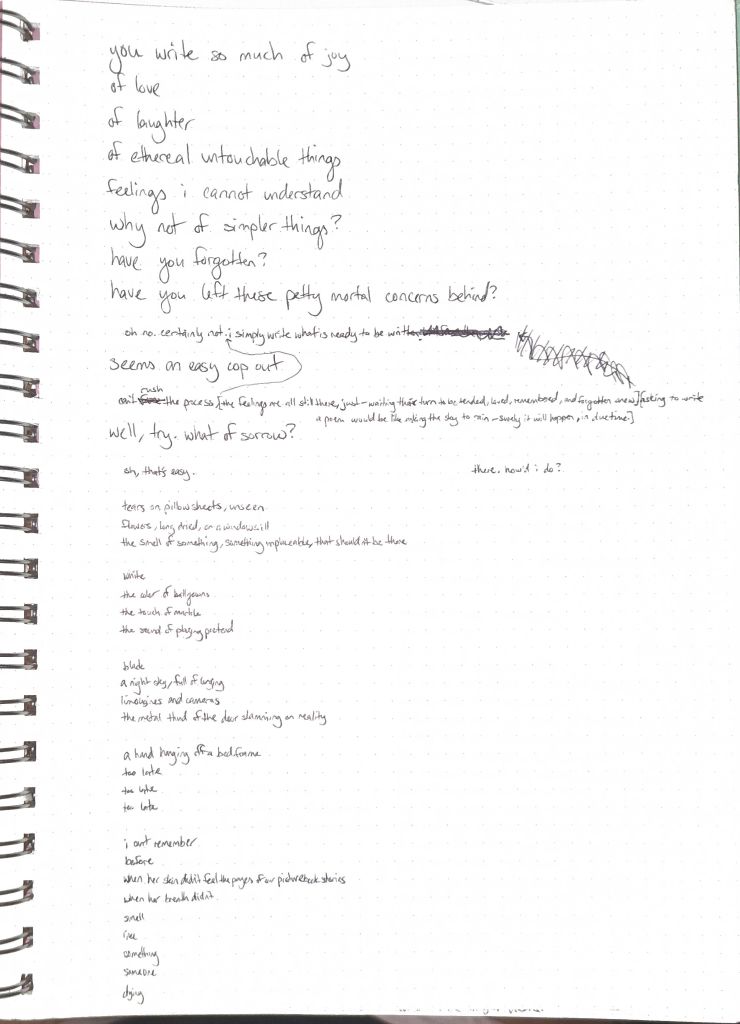 you write so much of joy
of love
of laughter
of ethereal untouchable things
feelings i cannot understand
why not of simpler things?
have you forgotten?
have you left these petty mortal concerns behind?
oh no. certainly not. i simply write what is ready to be written
seems an easy cop out
can't rush the process [the feelings are all still there, just - waiting their turn to be tended, loved, remembered, and forgotten anew] [asking to write
a poem would be like asking the sky to rain - surely it will happen, in due time.]
well, try. what of sorrow?
oh, that's easy. there. how'd i do?
tears on pillowsheets, unseen
flowers, long dried, on a windowsill
the smell of something, something implaceable, that shouldn't be there
white
the color of ballgowns
the touch of marble
the sound of playing pretend
black
a night sky, full of longing
limousines and cameras
the metal thud of the door slamming on reality
a hand hanging off a bedframe
too late
too late
too late
i can't remember
before
when her skin didn't feel the pages of our picturebook stories
when her breath didn't
smell
like
something
someone
dying